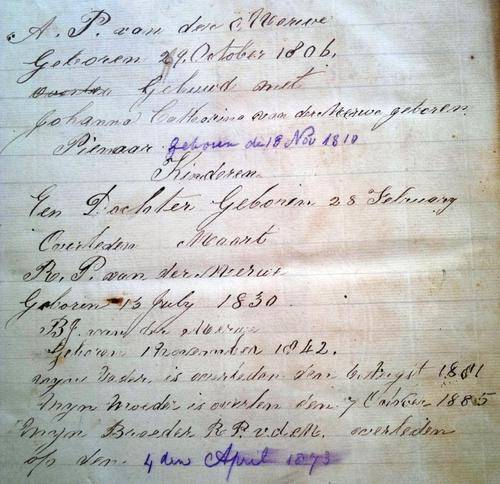 A. P. van der Merwe
Geboren 29 October 1806.
Gehuwd met
Johanna Catharina van der Merwe geboren
Pienaar. geboren de 18 Nov 1810
Kinderen
Een Dochter Geboren 28 February
Overleden Maart
R. P. van der Merwe
Geboren 13 July 1830.
BJ. van der Merwe
Geboren 1 November 1842.
myn Vader is overleden den 6 Augst 1881
Myn Moeder is overlen den 7 1885
Myn Broeder R P. v. d. M. overleden
op den 4 den April 1873